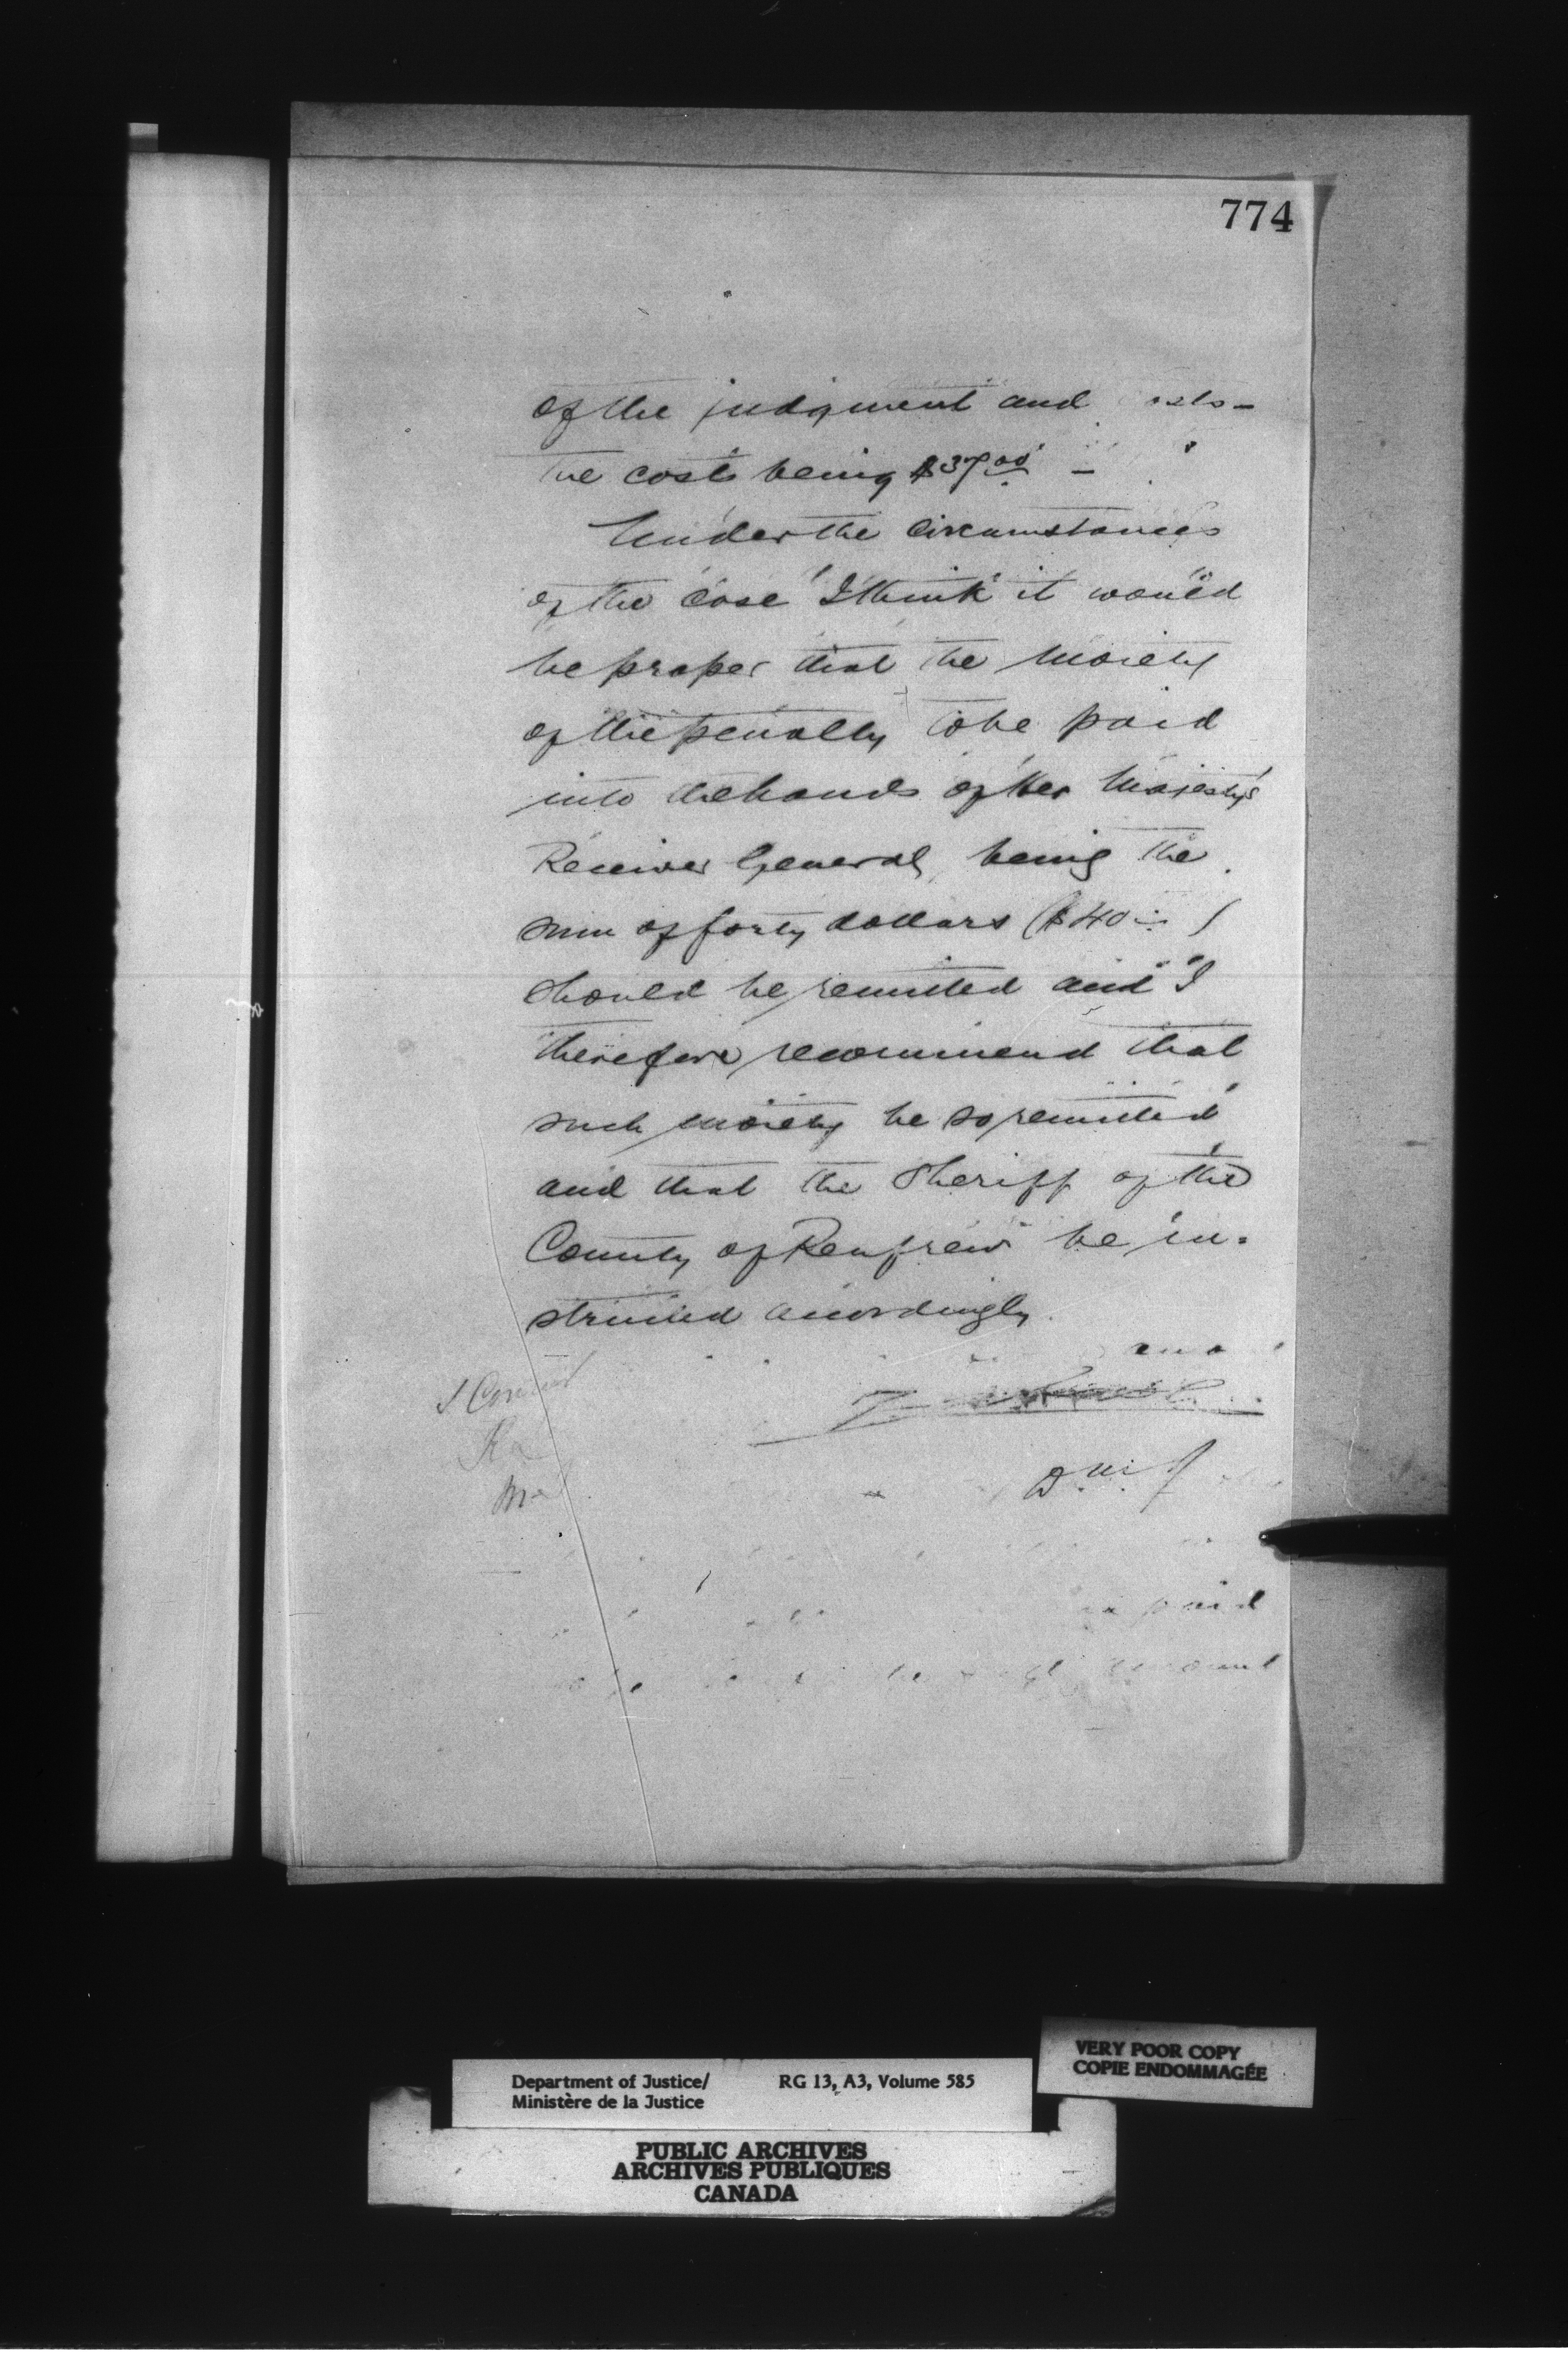 774
of the judgment and
the costs being $37.00 –
Under the circumstances
of the case I think it would
be proper that the moiety
of the penalty to be paid
into the hands of Her Majesty's
Receiver General, being the
sum of forty dollars ($40 )
should be remitted and I
therefore recommend that
such moiety be so remitted
and that the Sheriff of the
County of Renfrew be in-
structed accordingly.
I Concur
D.M.J.
paid
amount
VERY POOR COPY
COPIE ENDOMMAGÉE
Department of Justice/ RG 13, A3, Volume 585
Ministère de la Justice
PUBLIC ARCHIVES
ARCHIVES PUBLIQUES
CANADA